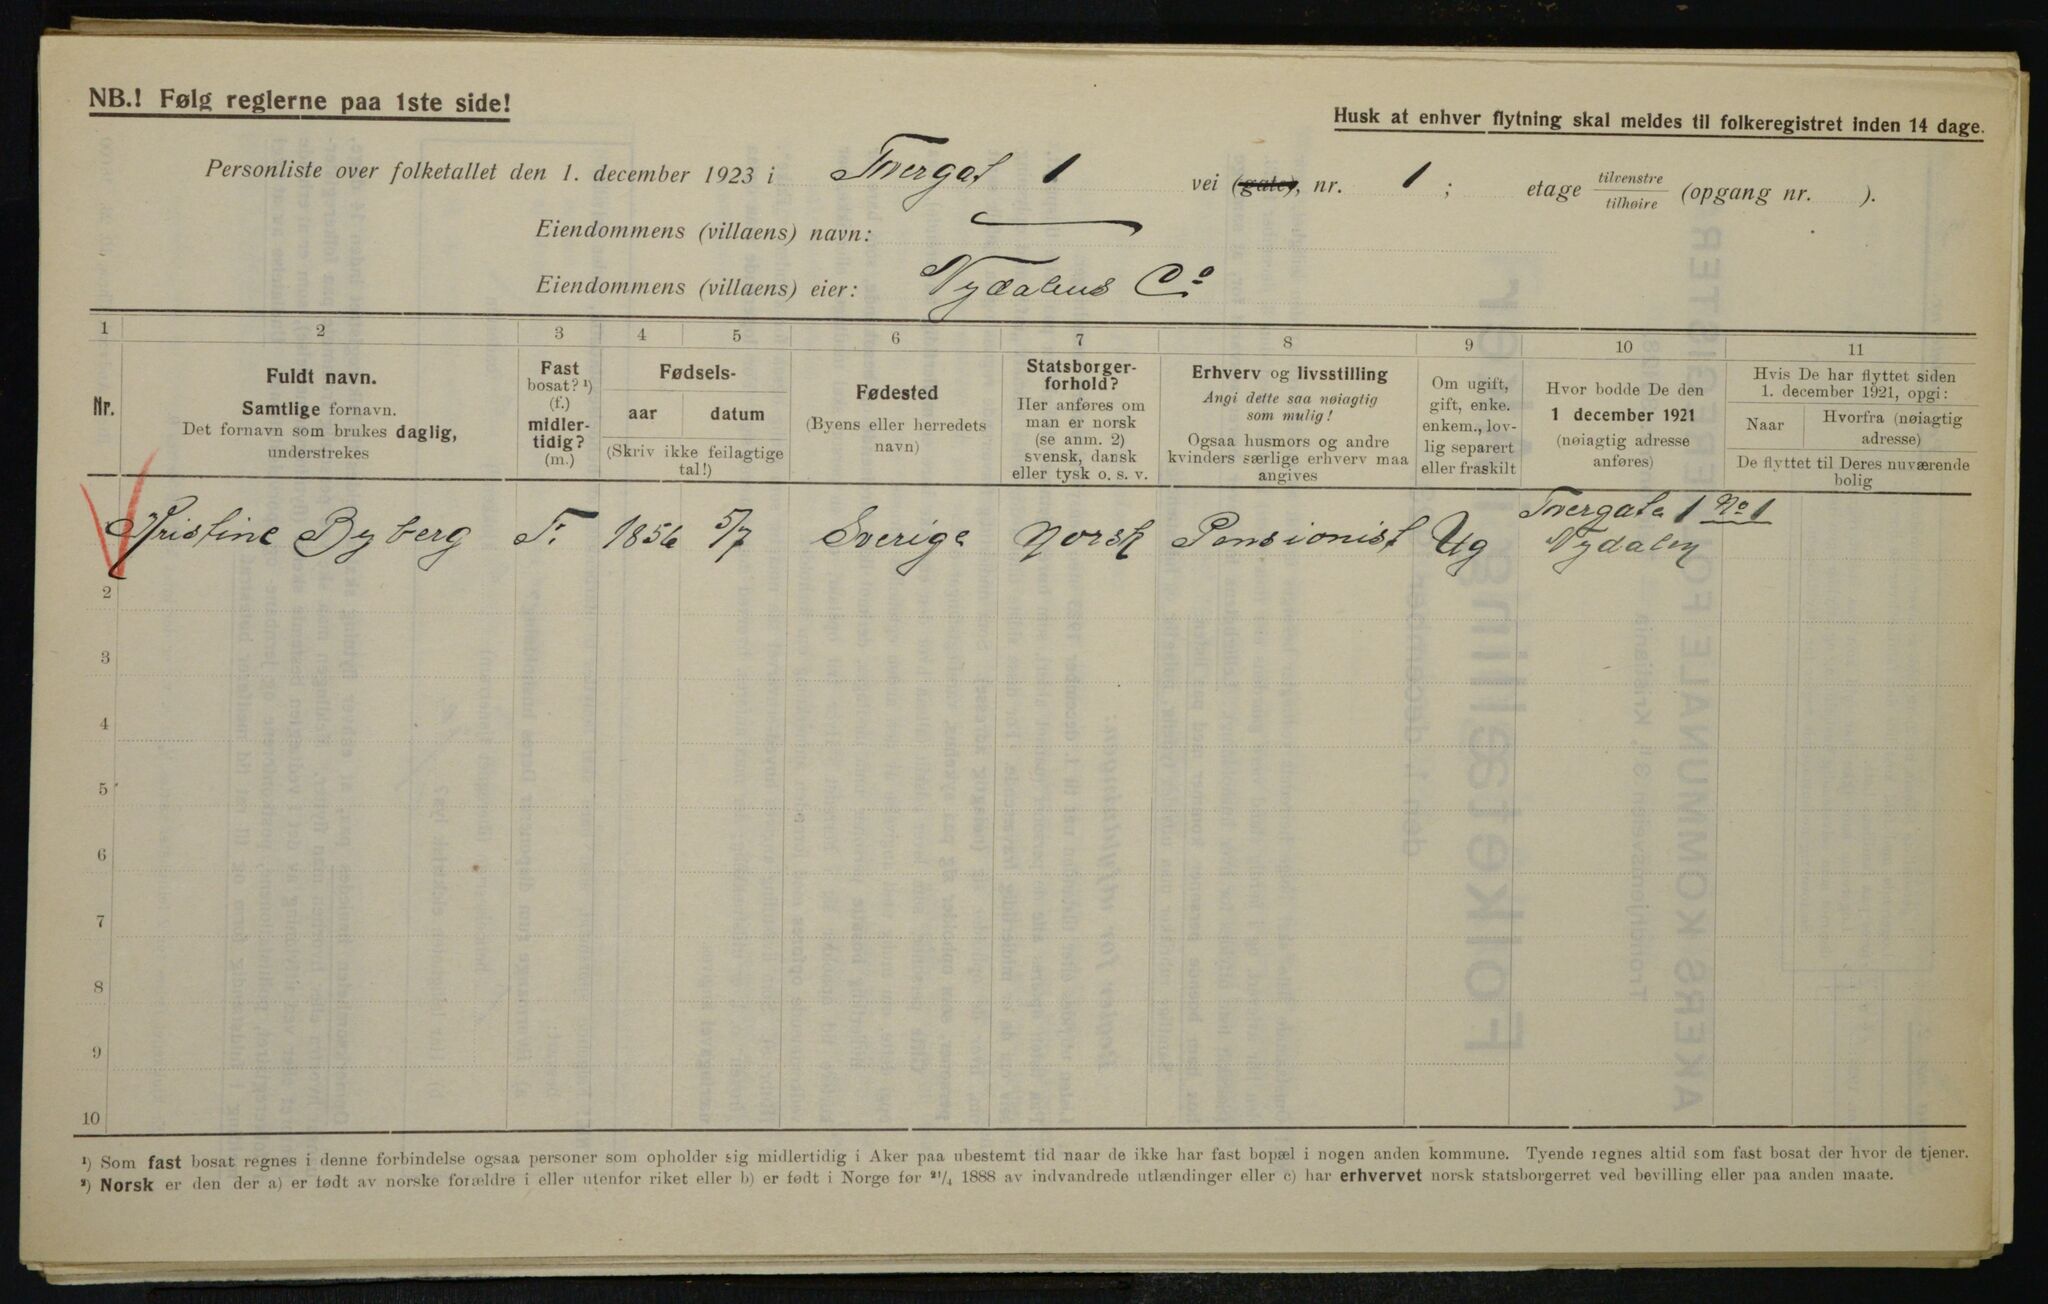 NB.! Følg reglerne paa 1ste side!
Husk at enhver flytning skal meldes til folkeregistret inden 14 dage.
Personliste over folketallet den 1. december 1923 i Tvergat 1 vei (gate), nr. 1 ; etage tilvenstre tilhøire (opgang nr. ).
Eiendommens (villaens) navn:
Eiendommens (villaens) eier: Nydalens Co
1 2 3 4 5 6 7 8 9 10 11
Nr.
Fuldt navn.
Samtlige fornavn.
Det fornavn som brukes daglig,
understrekes
Fast
bosat? ¹)
(f.)
midler-
tidig?
(m.)
Fødsels-
aar datum
(Skriv ikke feilagtige
tal!)
Fødested
(Byens eller herredets
navn)
Statsborger-
forhold?
Her anføres om
man er norsk
(se anm. 2)
svensk, dansk
eller tysk o. s. v.
Erhverv og livsstilling
Angi dette saa nøiagtig
som mulig!
Ogsaa husmors og andre
kvinders særlige erhverv maa
angives
Om ugift,
gift, enke.
enkem., lov-
lig separert
eller fraskilt
Hvor bodde De den
1 december 1921
(nøiagtig adresse
anføres)
Hvis De har flyttet siden
1. december 1921, opgi:
Naar Hvorfra (nøiagtig
adresse)
De flyttet til Deres nuværende
bolig
Tvergata 1 No 1
Kristine Byberg F. 1856 5/7 Sverige norsk Pensionist Ug Nydalen
2
3
4
5
6
7
8
9
10
¹) Som fast bosat regnes i denne forbindelse ogsaa personer som opholder sig midlertidig i Aker paa ubestemt tid naar de ikke har fast bopæl i nogen anden kommune. Tyende regnes altid som fast bosat der hvor de tjener.
²) Norsk er den der a) er født av norske forældre i eller utenfor riket eller b) er født i Norge før ²¹/₄ 1888 av indvandrede utlændinger eller c) har erhvervet norsk statsborgerret ved bevilling eller paa anden maate.